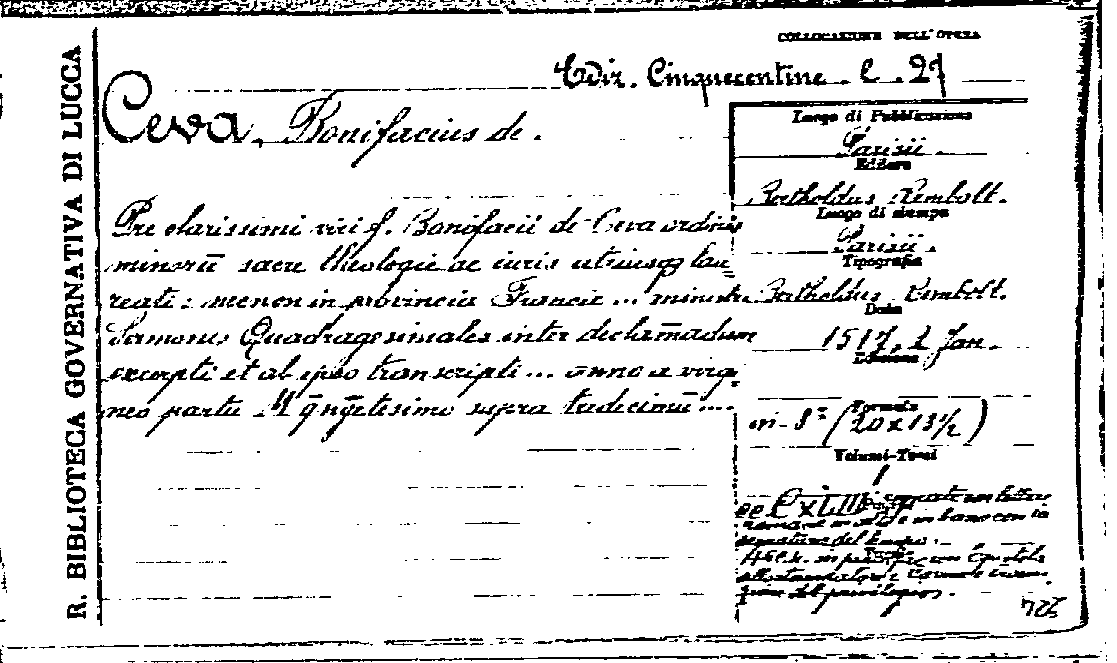 R. BIBLIOTECA GOVERNATIVA DI LUCCA
COLLOCAZIONE DELL'OPERA
Ediz. Cinquecentine. C. 27
Ceva, Bonifacius de.
Pre clarissimi viri f. Bonifacii de Ceva ordinis
minorū sacre theologie ac iuris utriusqȝ lau
reati: nec non in provincia Francie ... ministri
Sermones Quadragesimales inter declamādum
excerpti et ab ipso transcripti ... anno a virgi
neo partu M qn̄gētesimo supra tredecimū ....
Luogo di Pubblicazione
Parisii.
Editore
Bertholdus Rembolt.
Luogo di stampa
Parisii.
Tipografia
Bertholdus Rembolt.
Data
1517, 2 Jan.
Edizione
Formato
in-8° (20 x 13½)
Volumi-Tomi
1
cc. CXLIII
romane in alto e in basso con la
segnatura del tempo.
con Epistola
del
725